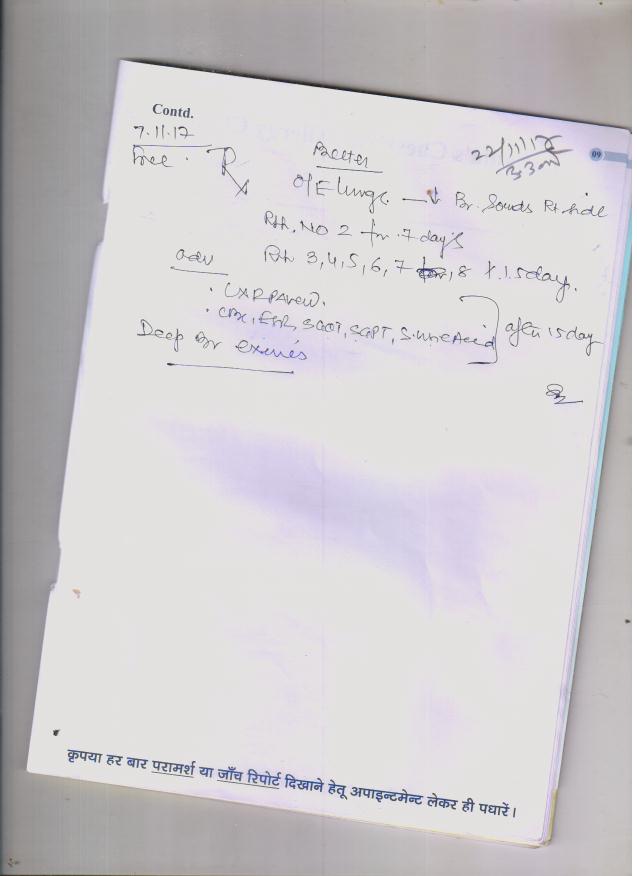 Contd.
7.11.17 Better 22/11/17
09
free. Rx
O/E lungs — ↓ Br. Sounds Rt side
Rth. NO 2 for 7 days
adv Rth 3,4,5,6,7, 8 x 15 day.
. CXR PA view.
. CBC, ESR, SGOT, SGPT, S. Uric Acid } after 15 day
Deep Br exercies
कृपया हर बार परामर्श या जाँच रिपोर्ट दिखाने हेतू अपाइन्टमेन्ट लेकर ही पधारें।